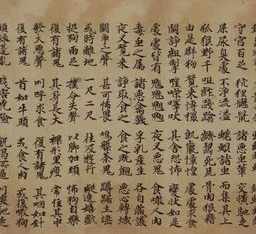 守宮百足 狖狸鼷鼠 諸惡蟲輩 交橫馳走
屎尿臭處 不淨流溢 蜣蜋諸蟲 而集其上
狐狼野干 咀嚼踐蹋 嚌齧死屍 骨肉狼藉
由是群狗 競來搏撮 飢羸慞惶 處處求食
鬪諍摣掣 啀喍嘷吠 其舍恐怖 變狀如是
處處皆有 魑魅魍魎 夜叉惡鬼 食噉人肉
毒蟲之屬 諸惡禽獸 孚乳產生 各自藏護
夜叉競來 爭取食之 食之既飽 惡心轉熾
鬪諍之聲 甚可怖畏 鳩槃荼鬼 蹲踞土埵
或時離地 一尺二尺 往返遊行 縱逸嬉戲
捉狗兩足 撲令失聲 以脚加頸 怖狗自樂
復有諸鬼 其身長大 裸形黑瘦 常住其中
發大惡聲 叫呼求食 復有諸鬼 其咽如針
復有諸鬼 首如牛頭 或食人肉 或復噉